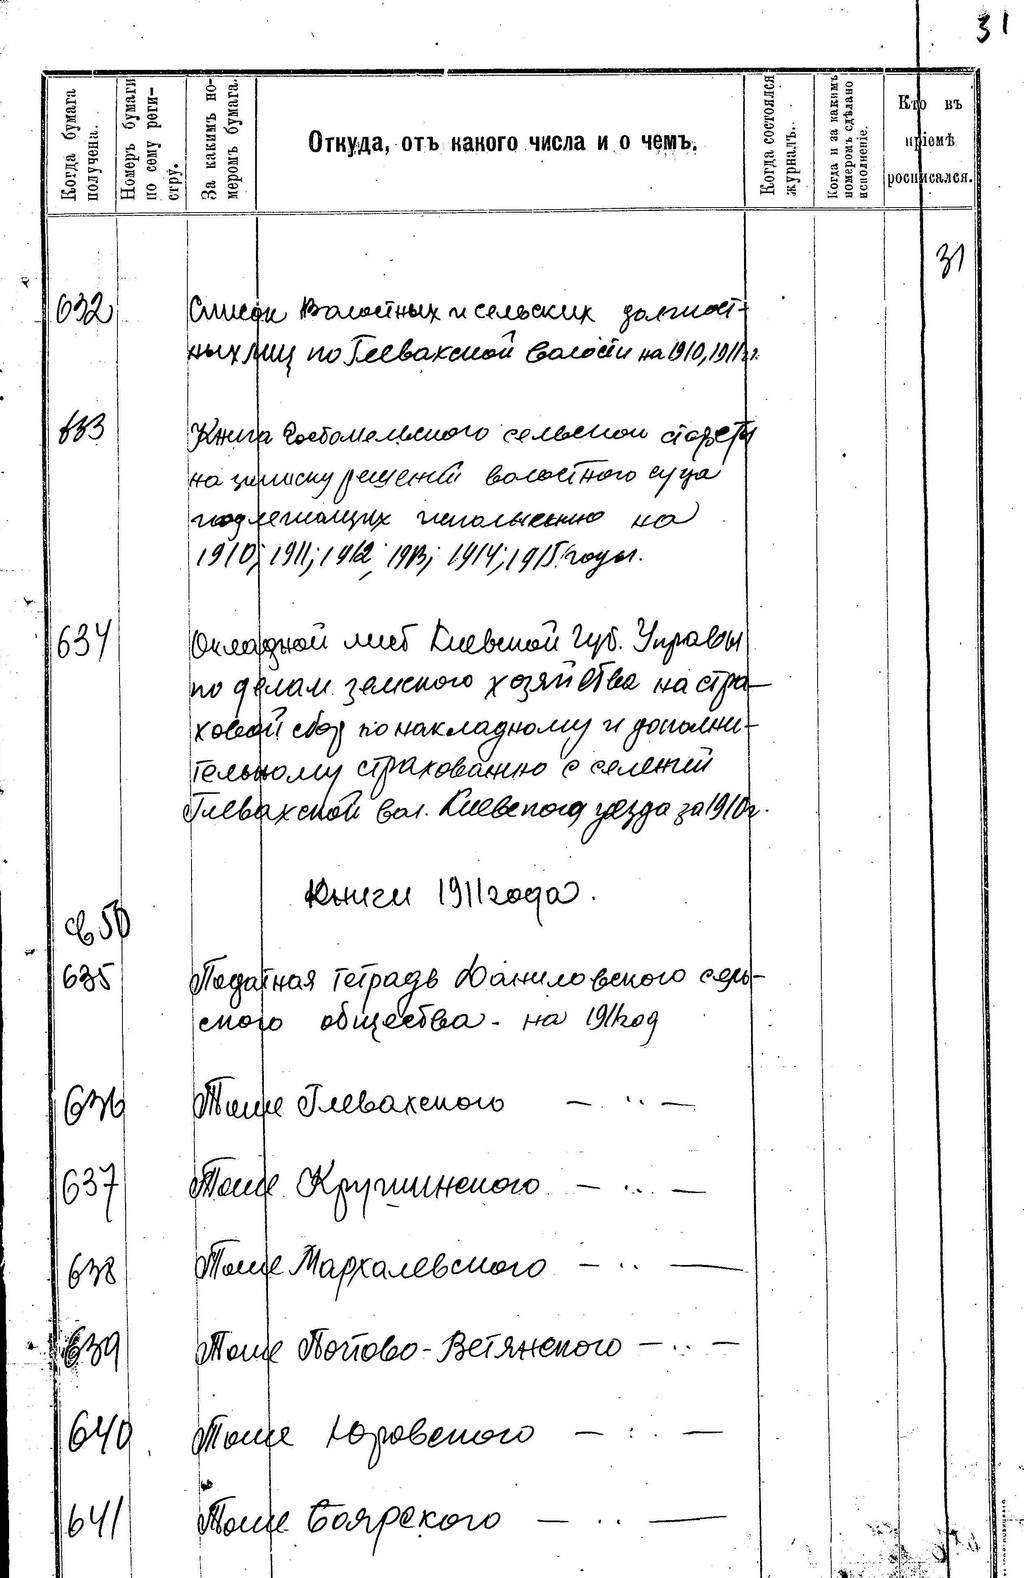 31
Когда бумага получена.
Номеръ бумаги по сему реги-стру.
За какимъ но-меромъ бумага.
Откуда, отъ какого числа и о чемъ.
Когда состоялся журналъ.
Когда и за какимъ номеромъ сдѣлано исполненіе.
Кто въ пріемѣ росписался.
31
632 Список волостных и сельских должност-
ных лиц по Глевахской волости на 1910, 1911 гг.
633 Книга Гостомельского сельской старосты
на записку решений волостного суда
подлежащих исполнению на
1910; 1911; 1912; 1913; 1914; 1915 годы.
634 Окладной лист Киевской Губ. Управы
по делам земского хозяйства на стра-
ховой сбор по накладному и дополни-
тельному страхованию с селений
Глевахской вол. Киевского уезда за 1910г.
Книги 1911 года.
св 50
635 Податная тетрадь Даниловского сель-
ского общества - на 1911 год
636 Тоже Глевахского — " —
637 Тоже Кругшинского — " —
638 Тоже Мархалевского — " —
639 Тоже Попово-Ветянского — " —
640 Тоже Юровского — " —
641 Тоже Боярского — " —